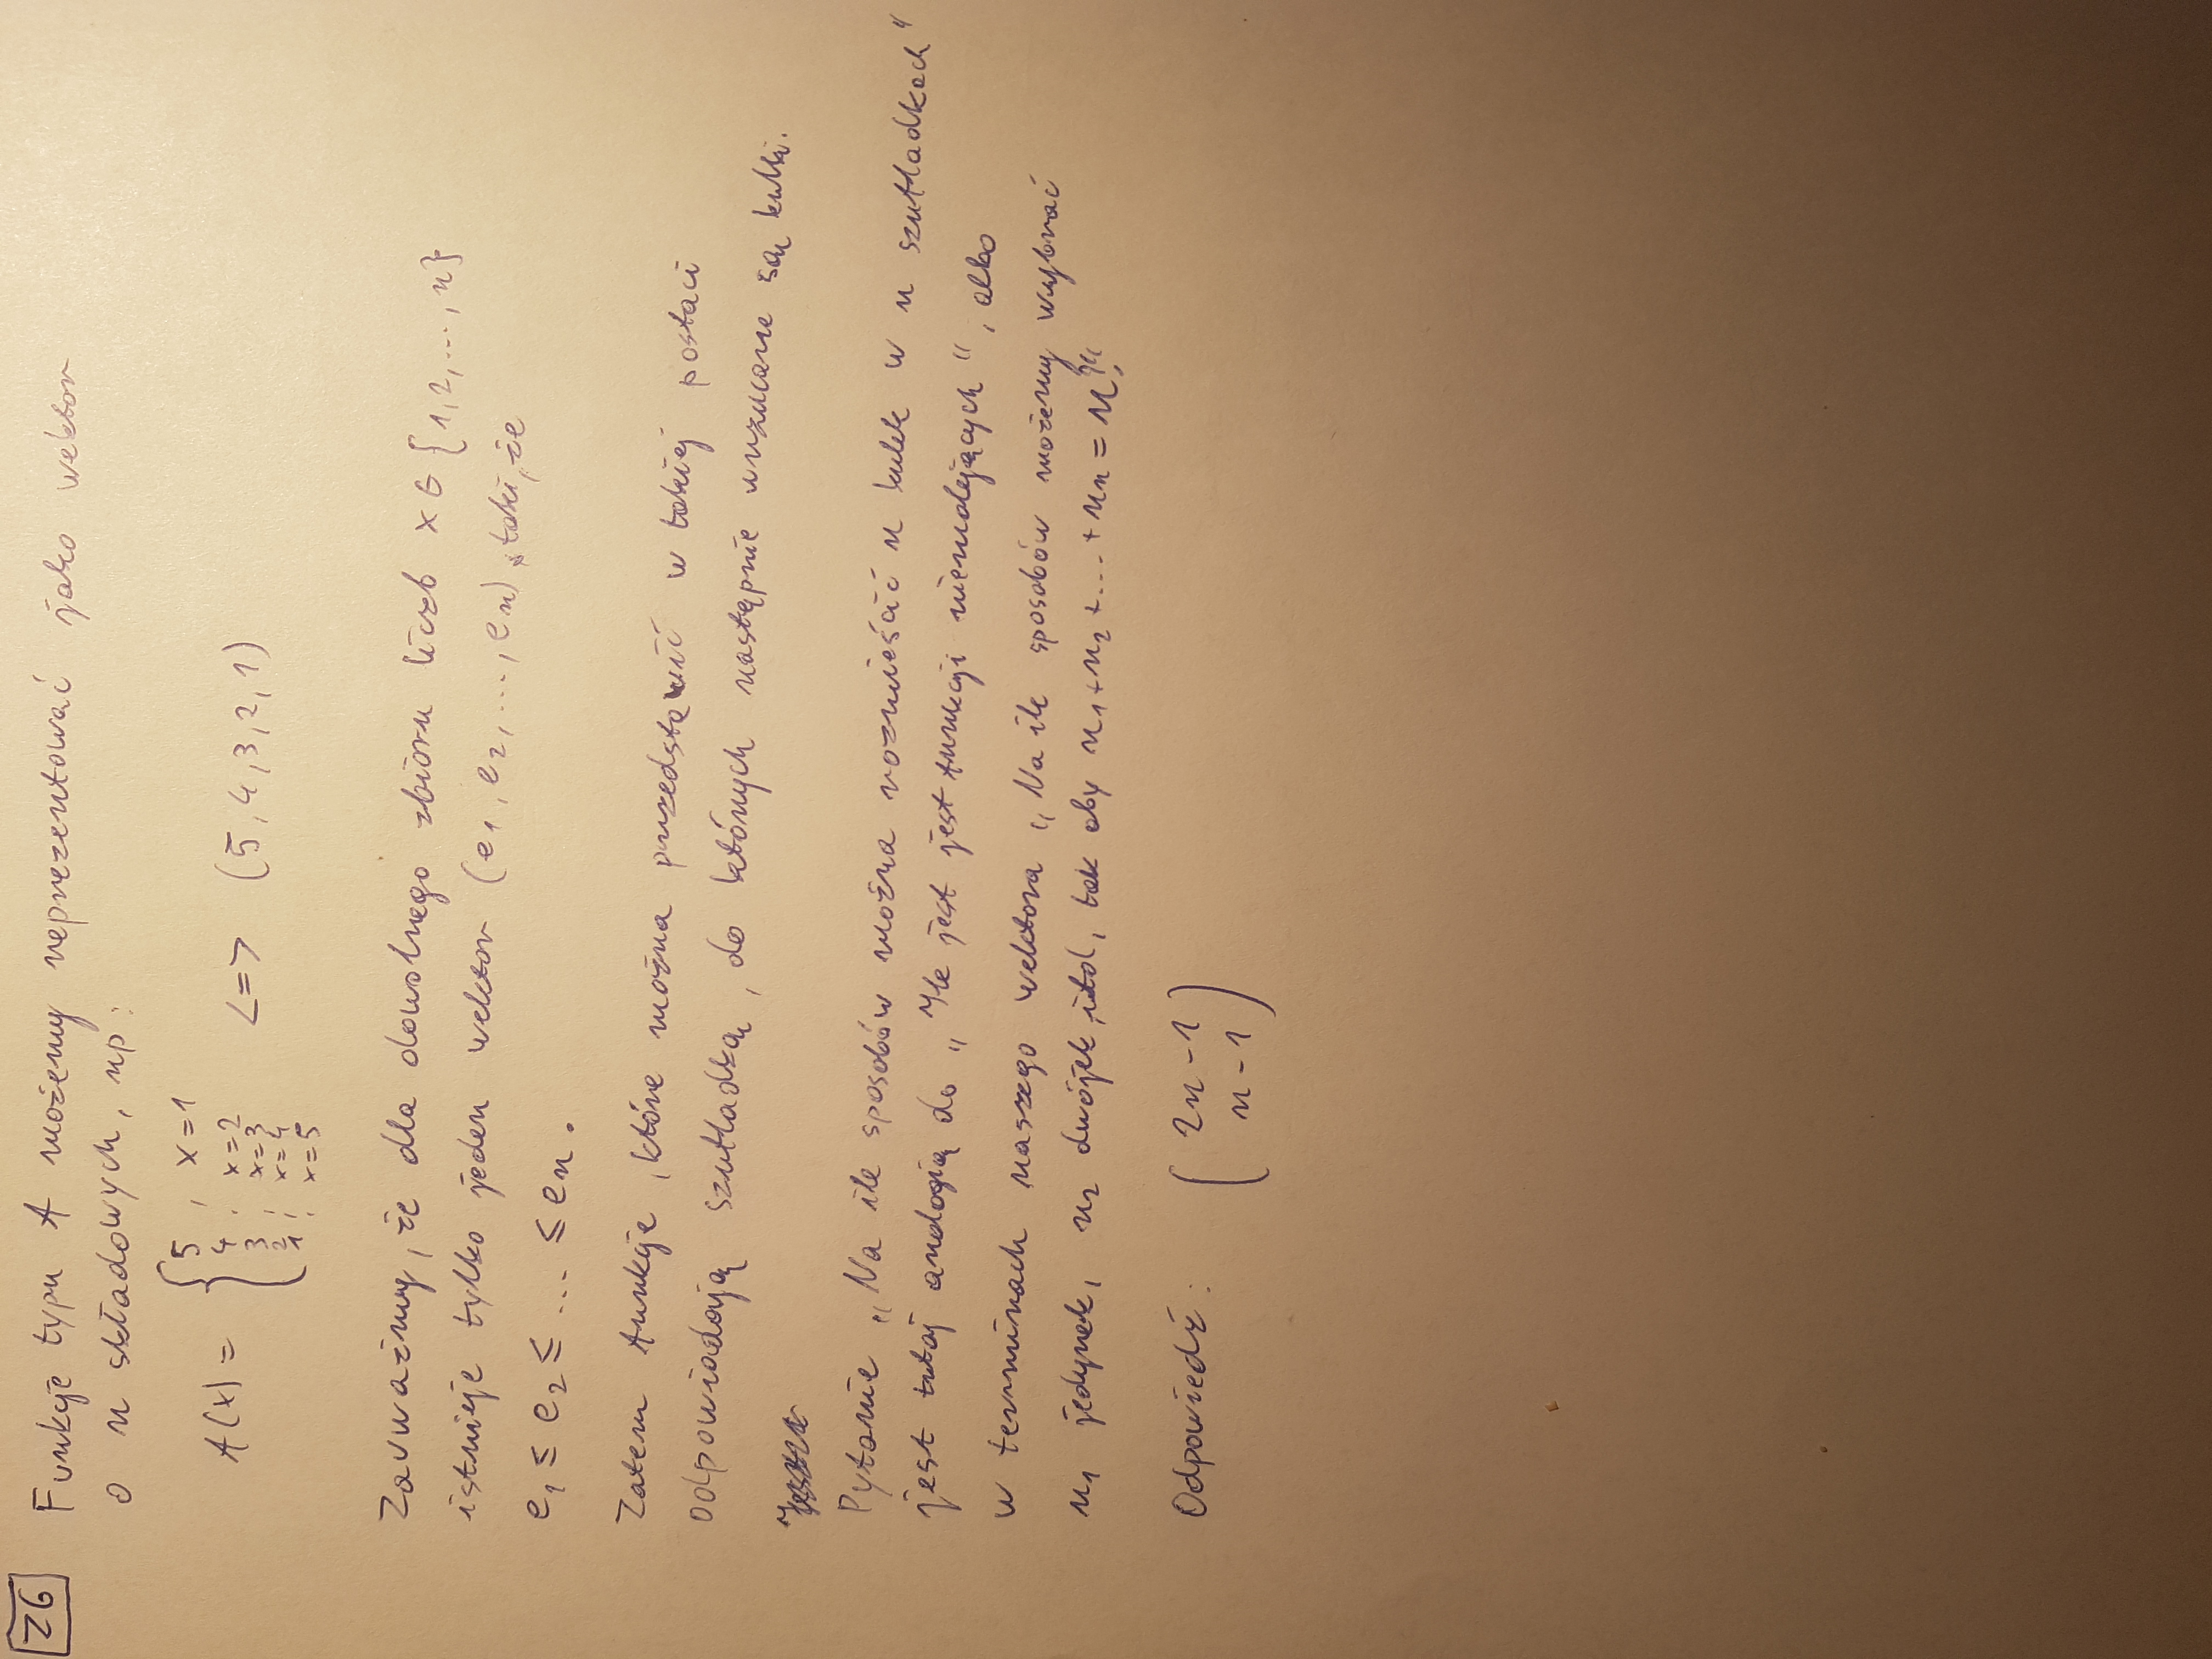 Z6
Funkcje typu A możemy reprezentować jako wektor
o n składowych, np:
A(x) = { 5, x=1
4, x=2
3, x=3
2, x=4
1, x=5
<=> (5,4,3,2,1)
Zauważmy, że dla dowolnego zbioru liczb x ∈ {1,2,...,n}
istnieje tylko jeden wektor (e₁, e₂, ..., eₙ), taki, że
e₁ ≤ e₂ ≤ ... ≤ eₙ.
Zatem funkcje, które można przedstawić w takiej postaci
odpowiadają szufladką, do których następnie wrzucane są kulki.
Pytanie „Na ile sposobów można rozmieścić n kulek w n szufladkach“
jest tutaj analogią do „Ile jest jest funkcji niemalejących“, albo
w terminach naszego wektora „Na ile sposobów możemy wybrać
n₁ jedynek, n₂ dwójek, itd, tak aby n₁+n₂+...+nₙ = n?“
Odpowiedź: (2n-1
n-1)